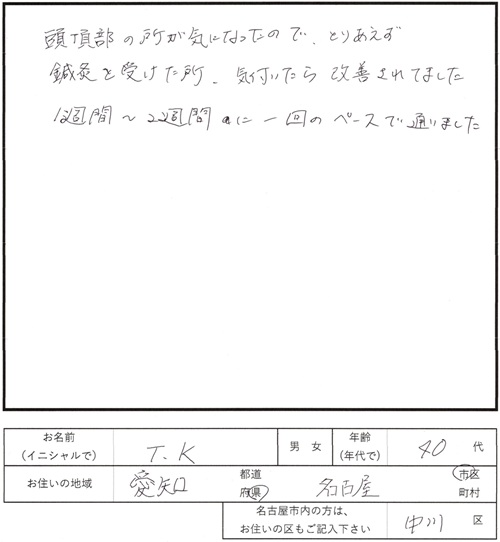 頭頂部の所が気になったので、とりあえず
鍼灸を受けた所、気付いたら改善されてました
1週間～2週間に一回のペースで通いました
お名前
(イニシャルで)
T.K
男 女
年齢
(年代で)
40 代
お住いの地域
愛知
都道
府県
名古屋
市区
町村
名古屋市内の方は、
お住いの区もご記入下さい
中川 区